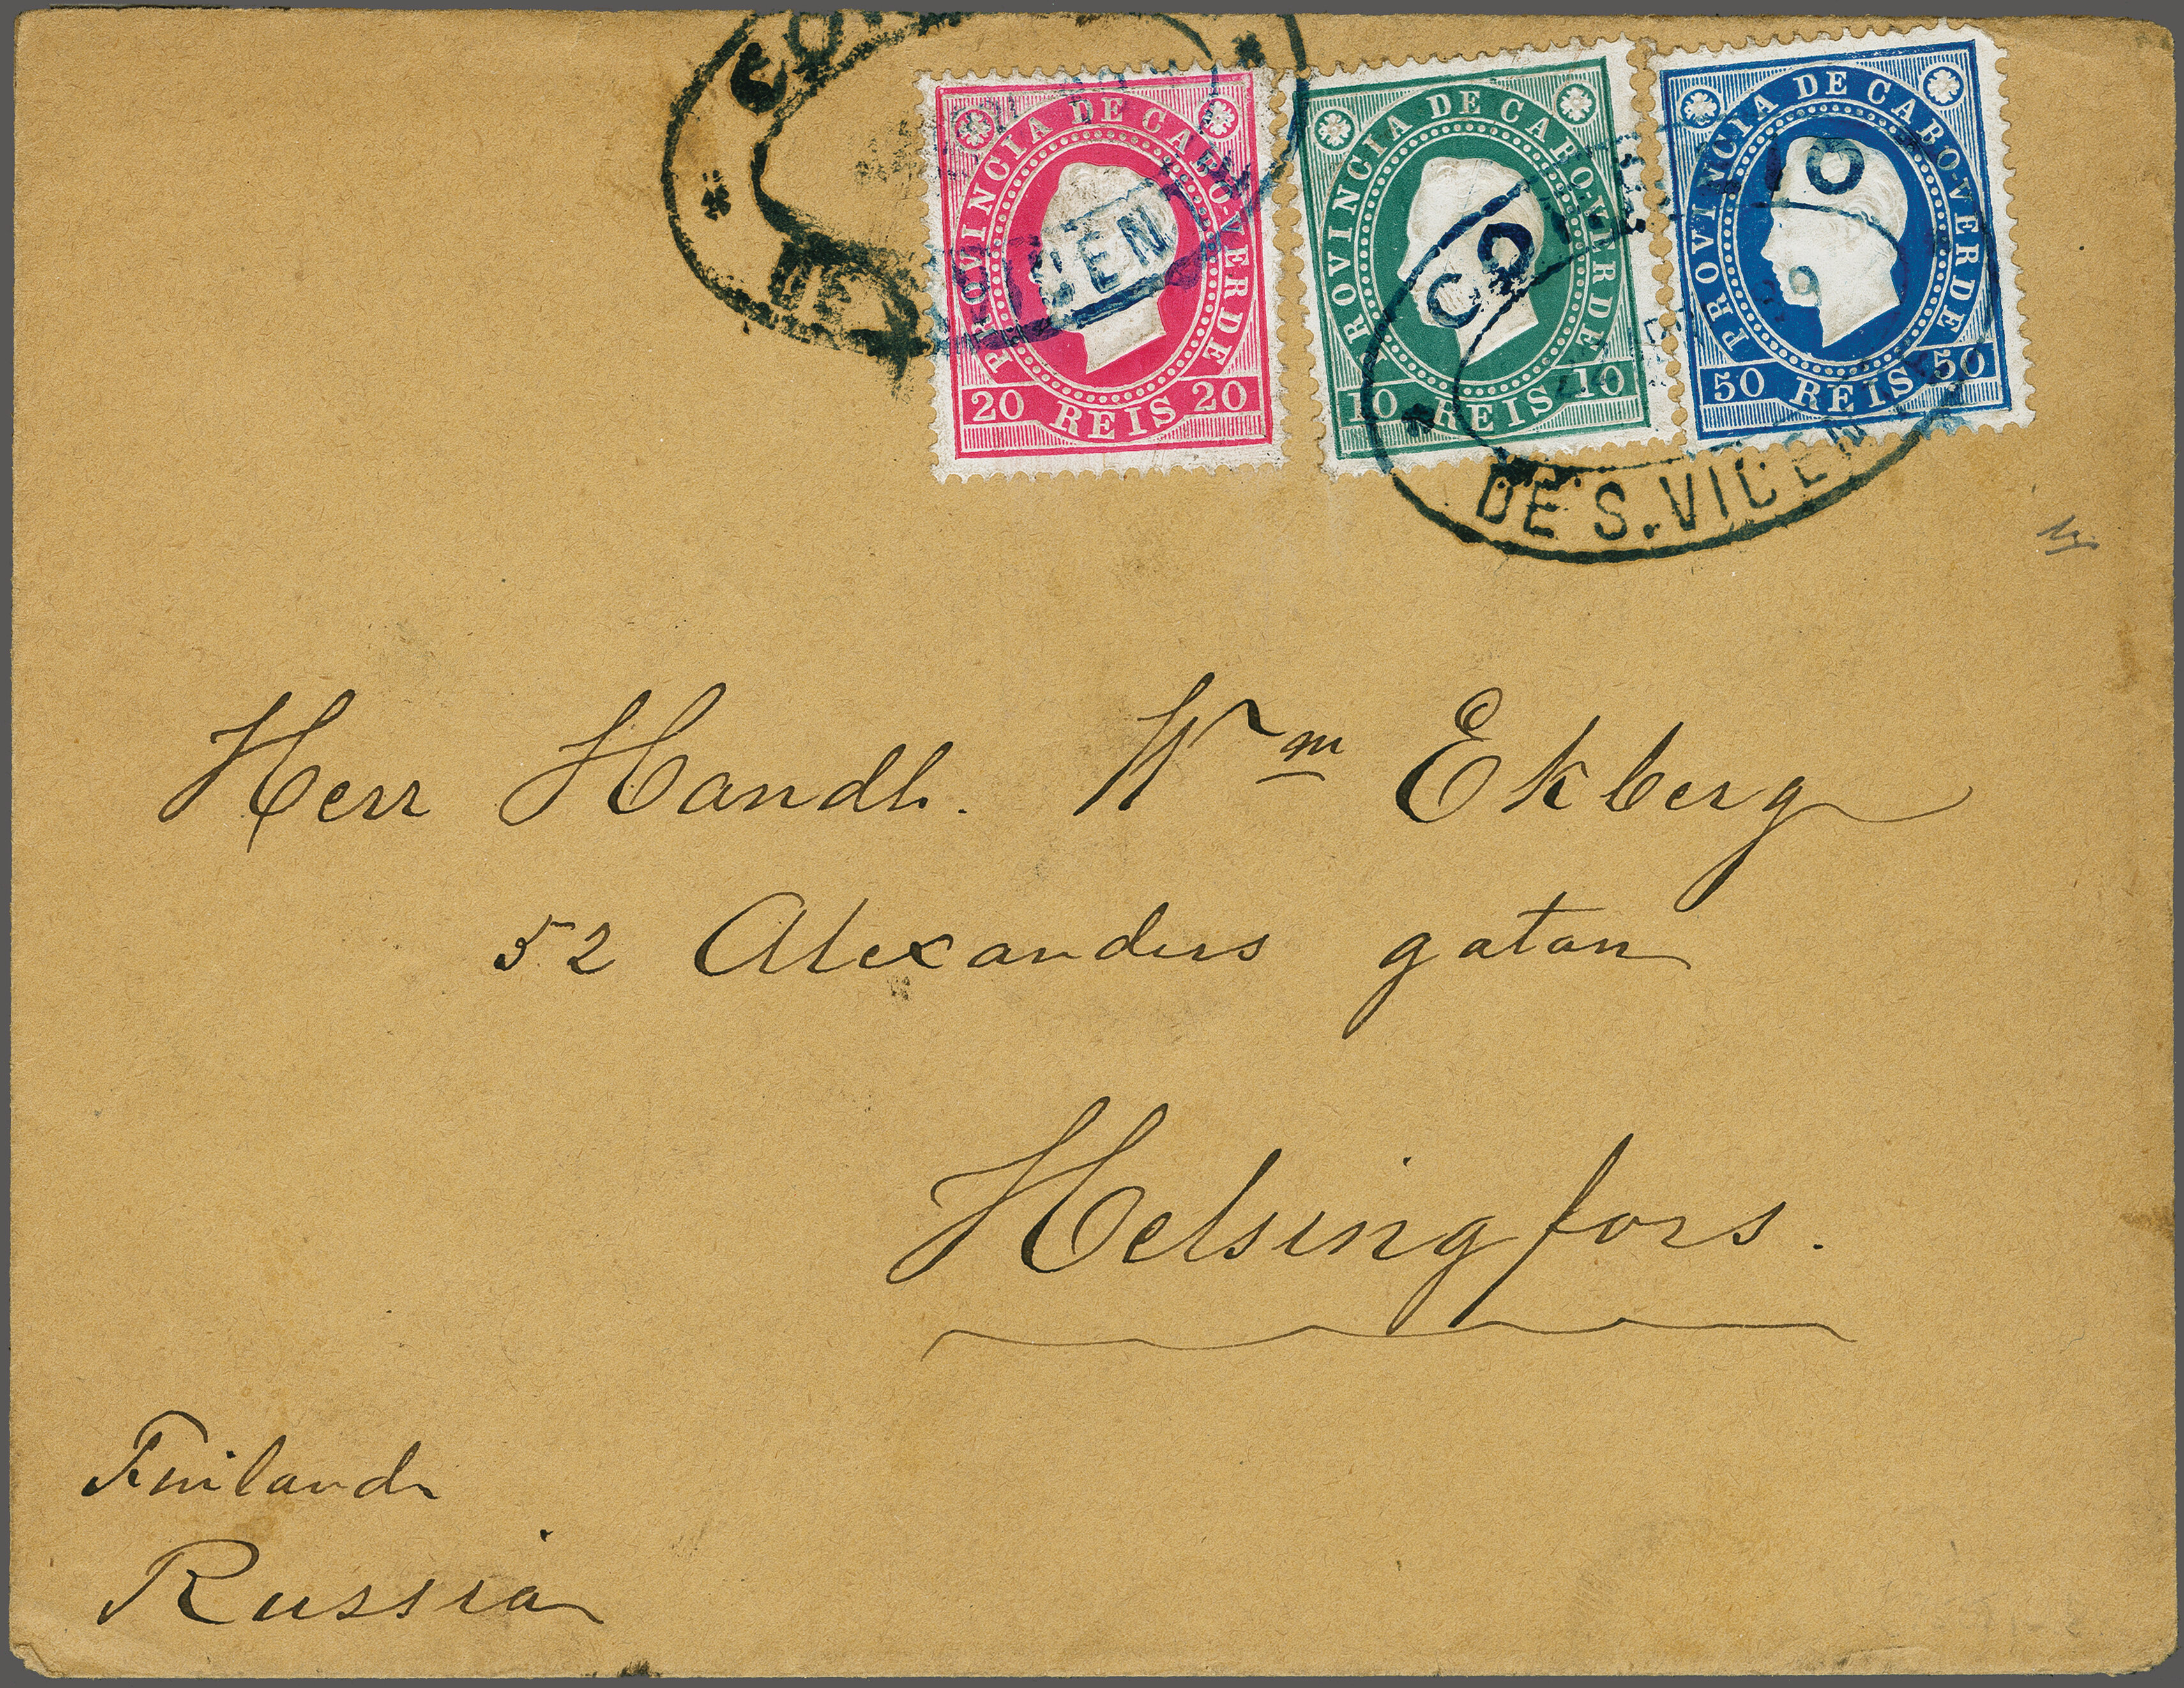 PROVINCIA DE CABO-VERDE
20 REIS 20
PROVINCIA DE CABO-VERDE
10 REIS 10
PROVINCIA DE CABO-VERDE
50 REIS 50
DE
CEN
CO
IO
DE S. VICEN
Herr Handl. Wm Ekberg
52 Alexanders gatan
Helsingfors.
Finland
Russia